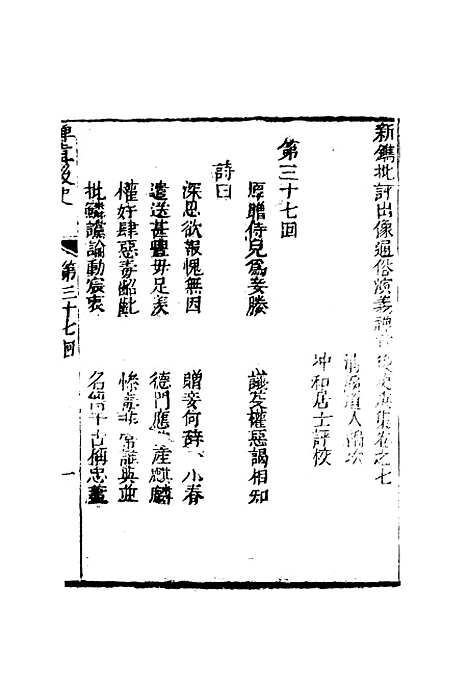 新鐫批評出像通俗演義禪真後史庚集卷之七
清溪道人編次
冲和居士評校
第三十七回
厚贈侍兒爲妾媵 議芟權惡謁相知
詩曰
深思欲報愧無因 贈妾何辭小春
遣送甚豐毋足羨 德門應產麒麟
權奸肆惡毒 慘毒非常誰與並
批鱗讜論動宸衷 名留千古稱忠藎
禪真後史
第三十七回
一